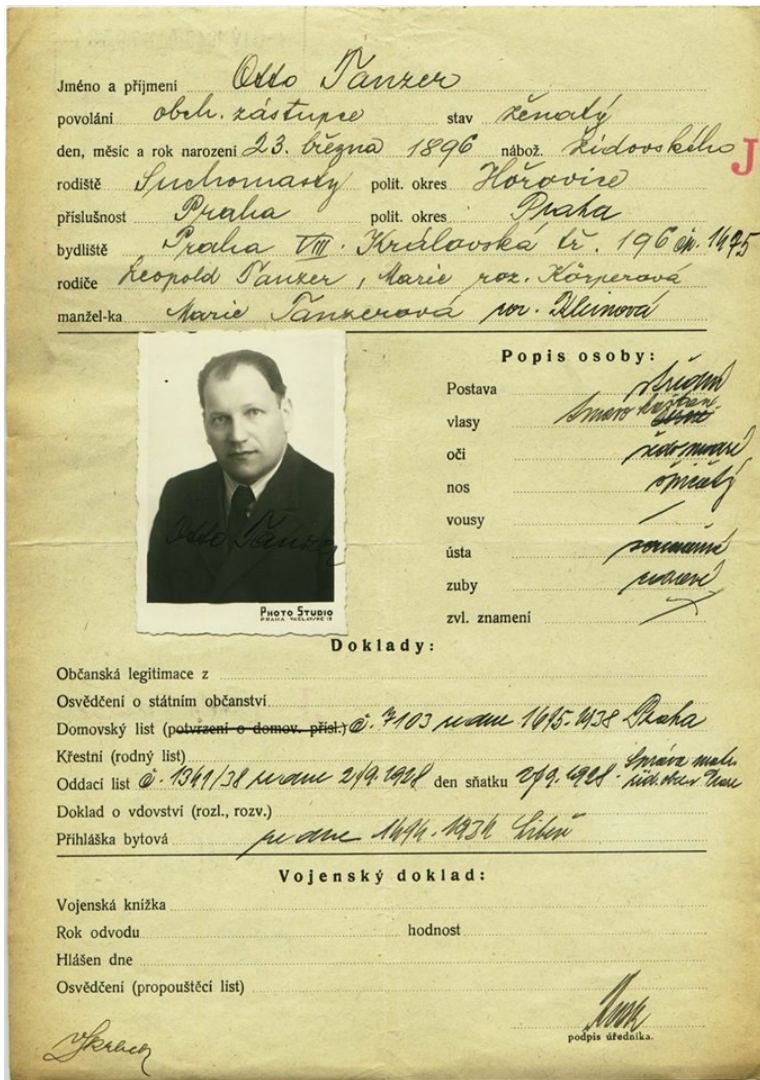 Jméno a příjmení Otto Tanzer
povolání obch. zástupce stav ženatý
den, měsíc a rok narození 23. března 1896 nábož. židovského J
rodiště Suchomasty polit. okres Hořovice
příslušnost Praha polit. okres Praha
bydliště Praha VIII. Královská tř. 196 čp. 1475
rodiče Leopold Tanzer, Marie roz. Körperová
manžel-ka Marie Tanzerová roz. Kleinová
Popis osoby:
Postava střední
vlasy tmavo kaštan
oči šedomodré
nos špičatý
vousy /
ústa souměrná
zuby zdravé
zvl. znamení
Otto Tanzer
PHOTO STUDIO
PRAHA
Doklady:
Občanská legitimace z
Osvědčení o státním občanství
Domovský list (potvrzení o domov. přísl.) č. 7103 ze dne 16/5. 1938 Praha
Křestní (rodný list)
Oddací list č. 1341/38 ze dne 2/9. 1928 den sňatku 2/9. 1928. Správa matr.
Doklad o vdovství (rozl., rozv.)
Přihláška bytová ze dne Libeň
Vojenský doklad:
Vojenská knížka
Rok odvodu hodnost
Hlášen dne
Osvědčení (propouštěcí list)
podpis úředníka.